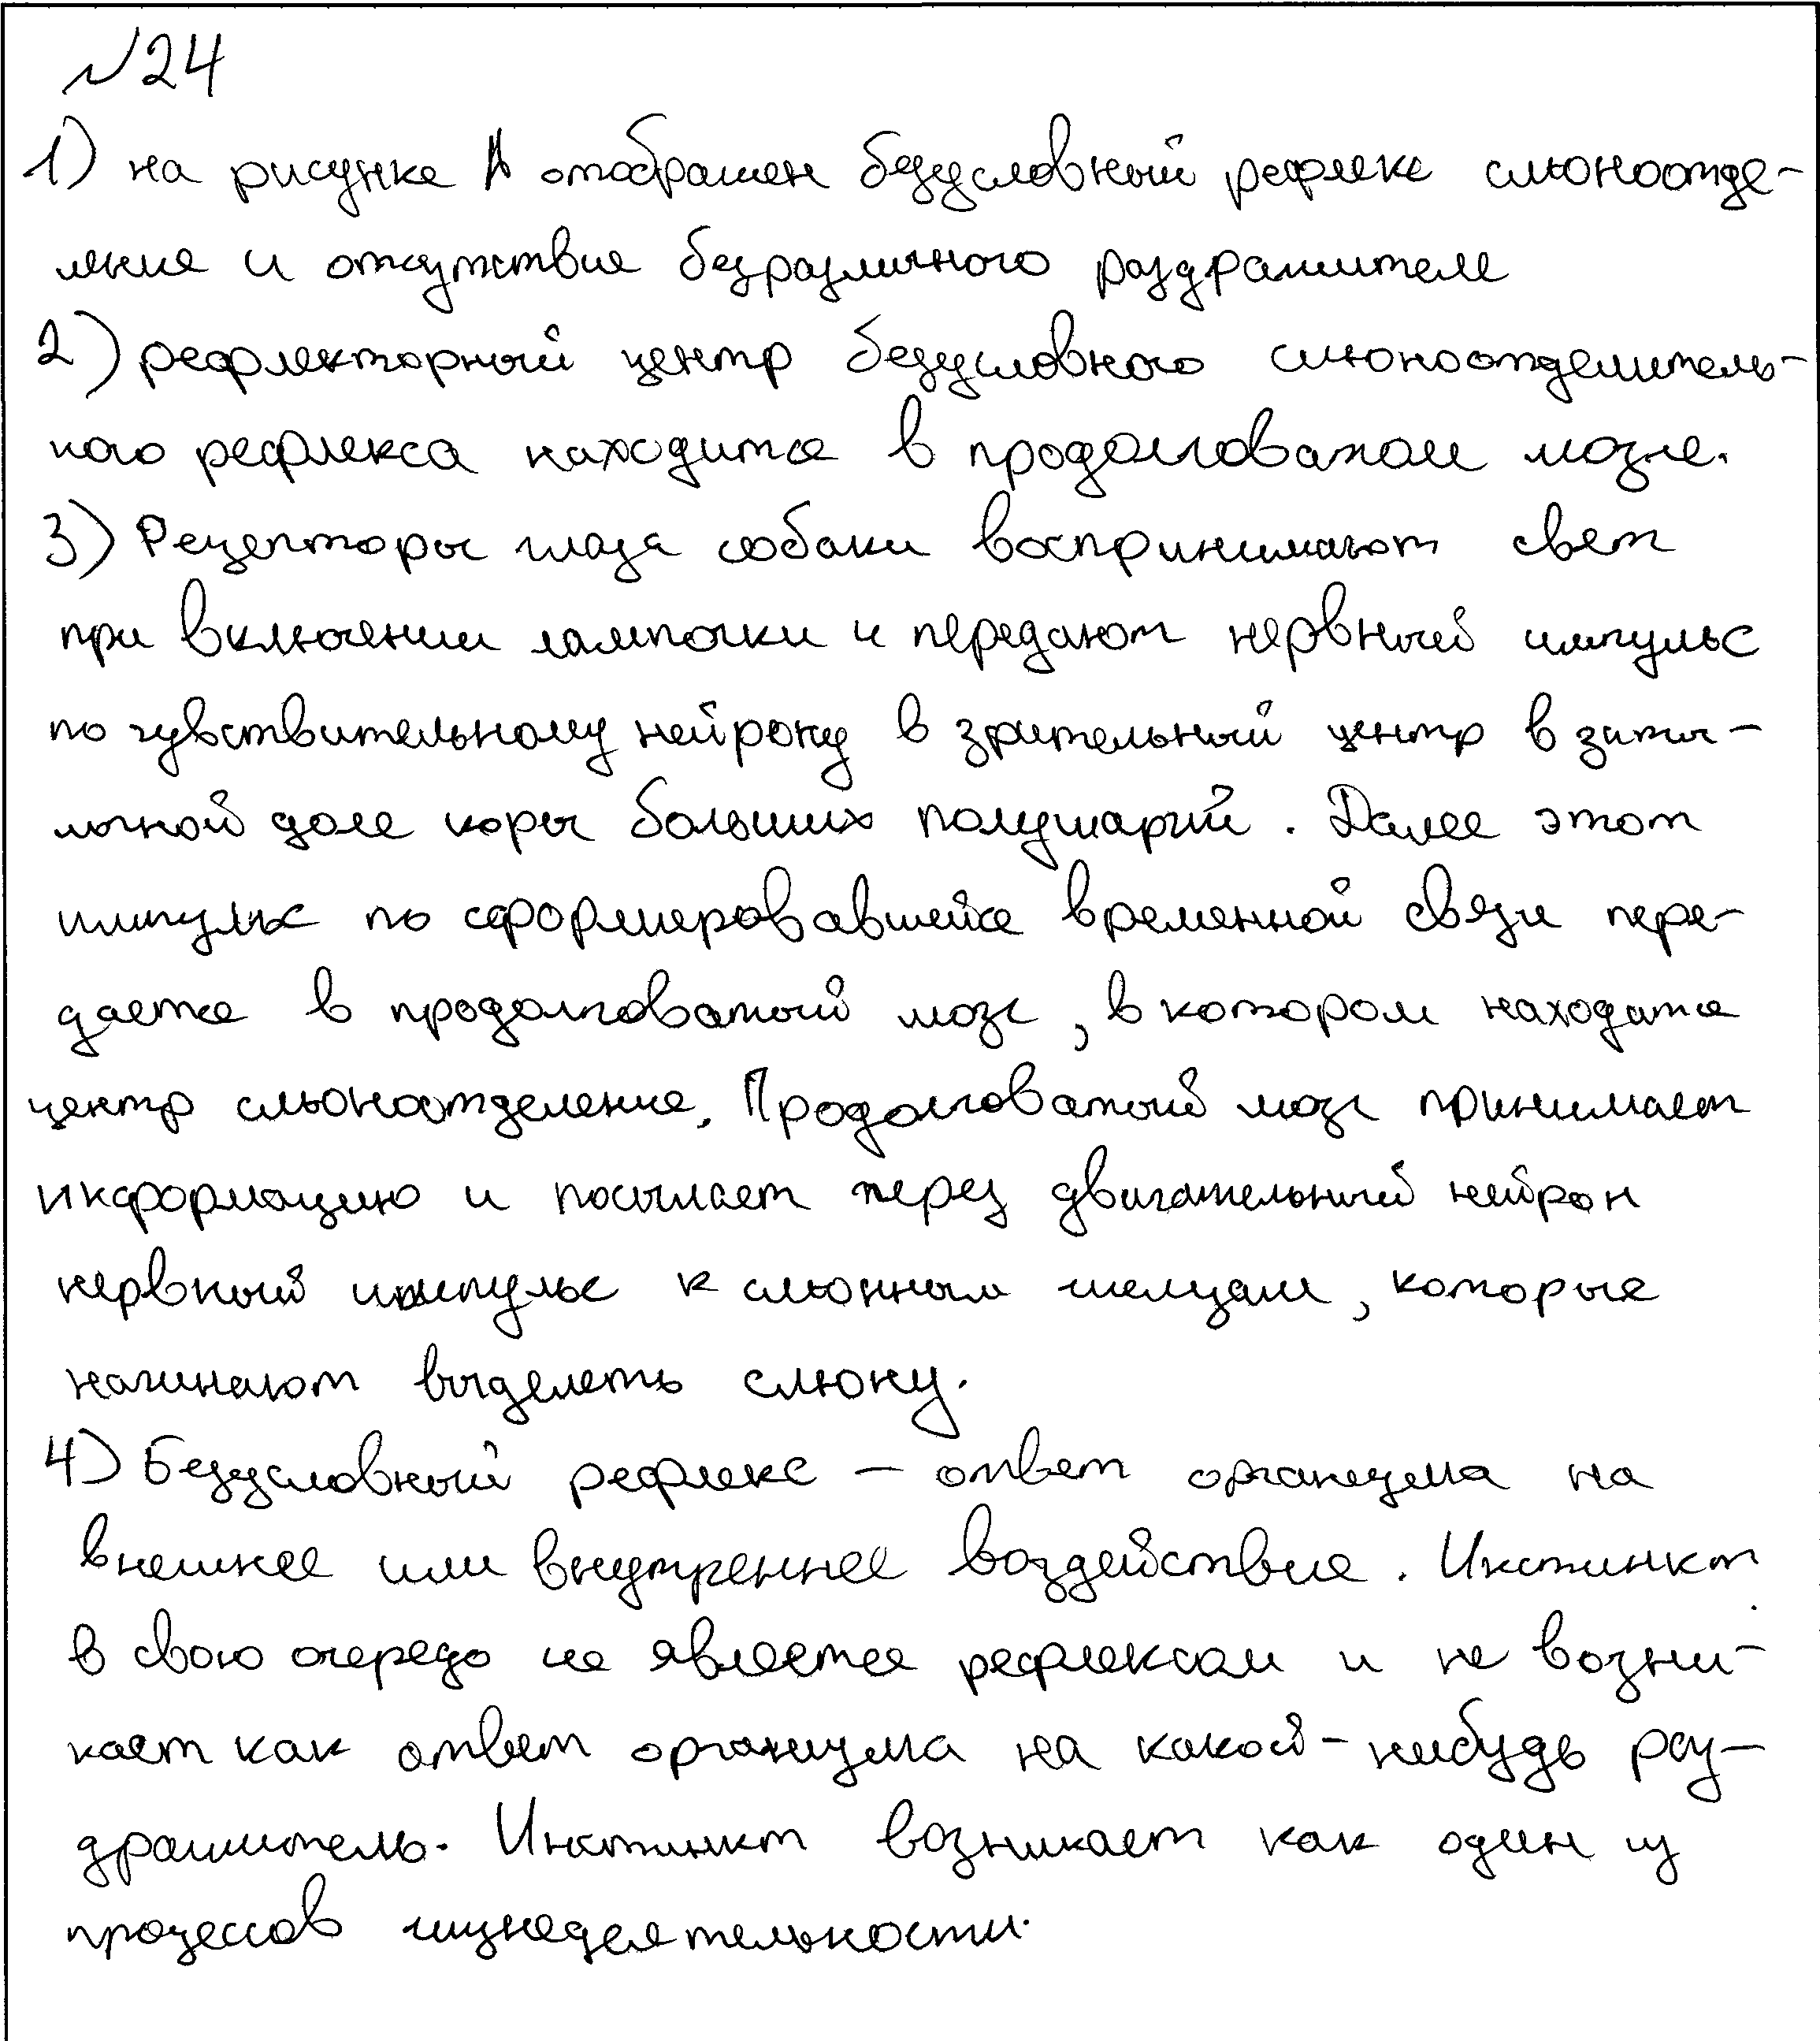 №24
1) на рисунке А отображен безусловный рефлекс слюноотде-
ления и отсутствие безразличного раздражителя
2) рефлекторный центр безусловного слюноотделитель-
ного рефлекса находится в продолговатом мозге.
3) Рецепторы глаза собаки воспринимают свет
при включении лампочки и передают нервный импульс
по чувствительному нейрону в зрительный центр в заты-
лочной доле коры больших полушарий. Далее этот
импульс по сформировавшейся временной связи пере-
дается в продолговатый мозг, в котором находится
центр слюноотделения. Продолговатый мозг принимает
информацию и посылает через двигательный нейрон
нервный импульс к слюнным железам, которые
начинают выделять слюну.
4) Безусловный рефлекс – ответ организма на
внешнее или внутреннее воздействие. Инстинкт
в свою очередь не является рефлексом и не возни-
кает как ответ организма на какой-нибудь раз-
дражитель. Инстинкт возникает как один из
процессов жизнедеятельности.